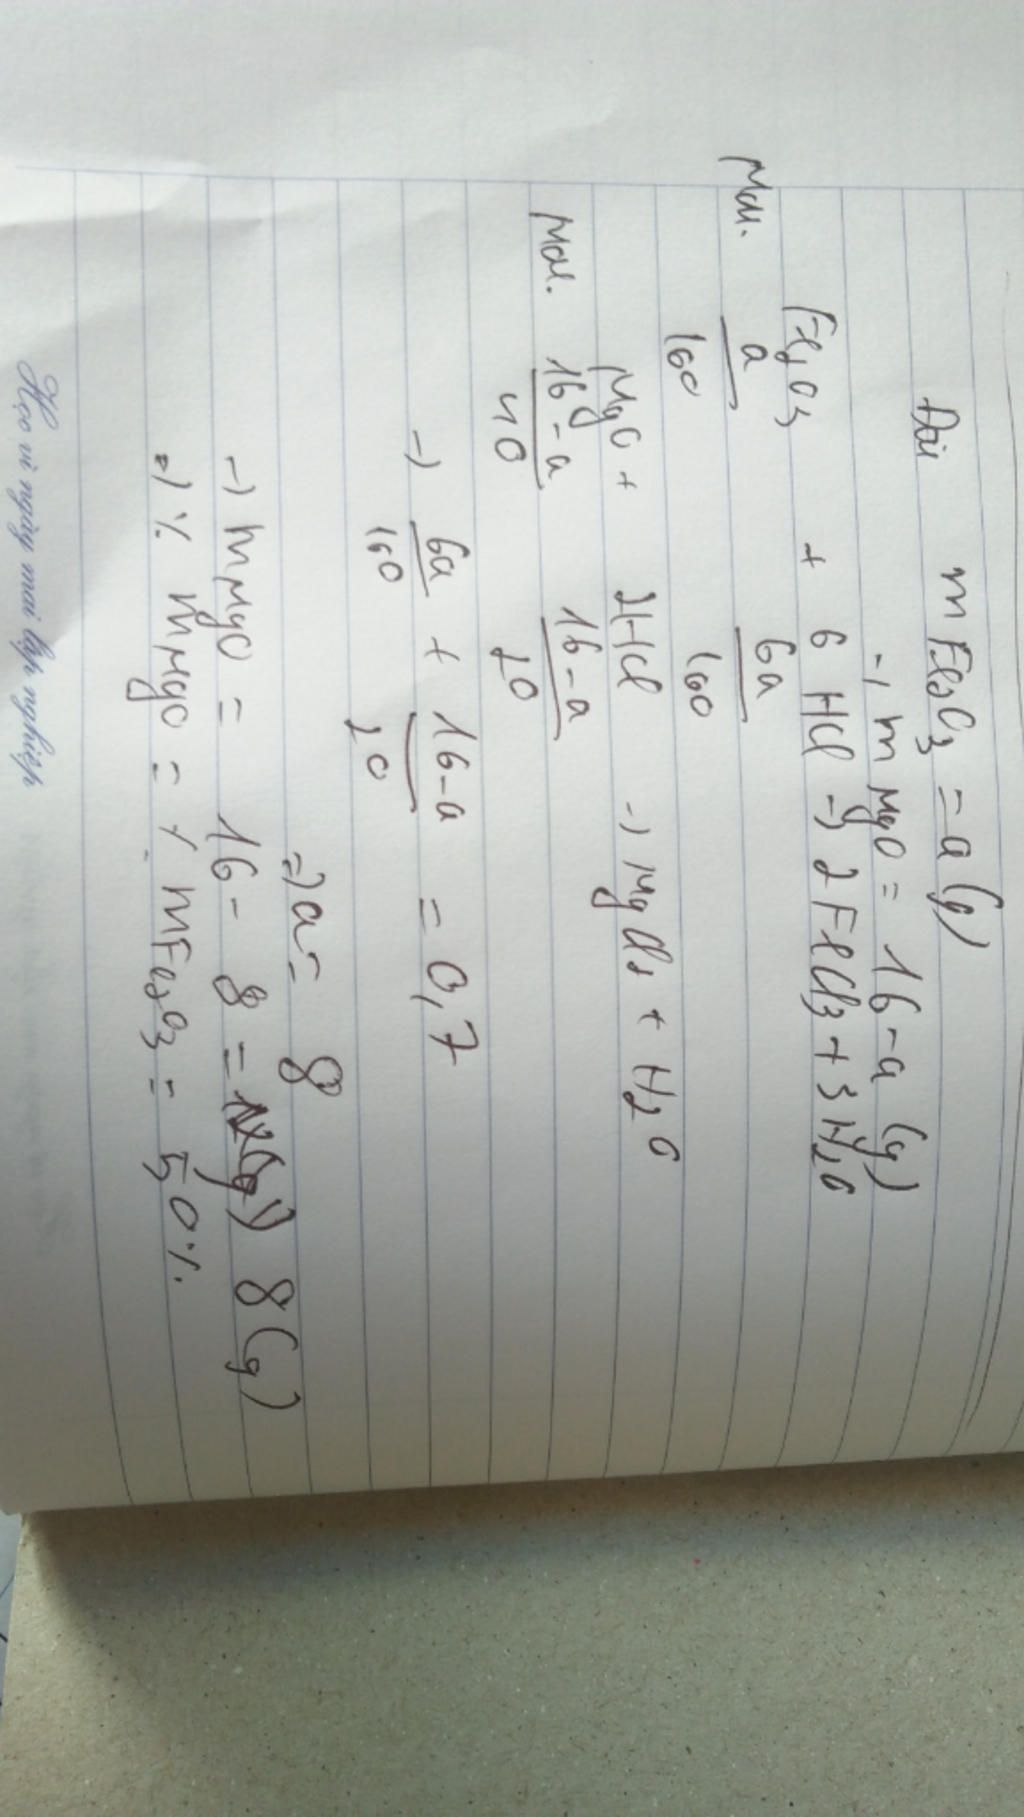 Đặt m Fe2O3 = a (g)
-) m MgO = 16 - a (g)
Fe2O3 + 6 HCl -) 2 FeCl3 + 3 H2O
Mol. a/160 6a/160
MgO + 2HCl -) MgCl2 + H2O
Mol. 16-a/40 16-a/20
-) 6a/160 + 16-a/20 = 0,7
=) a = 8
-) m MgO = 16 - 8 = 8 (g)
=) % m MgO = % m Fe2O3 = 50%.
Học vì ngày mai lập nghiệp